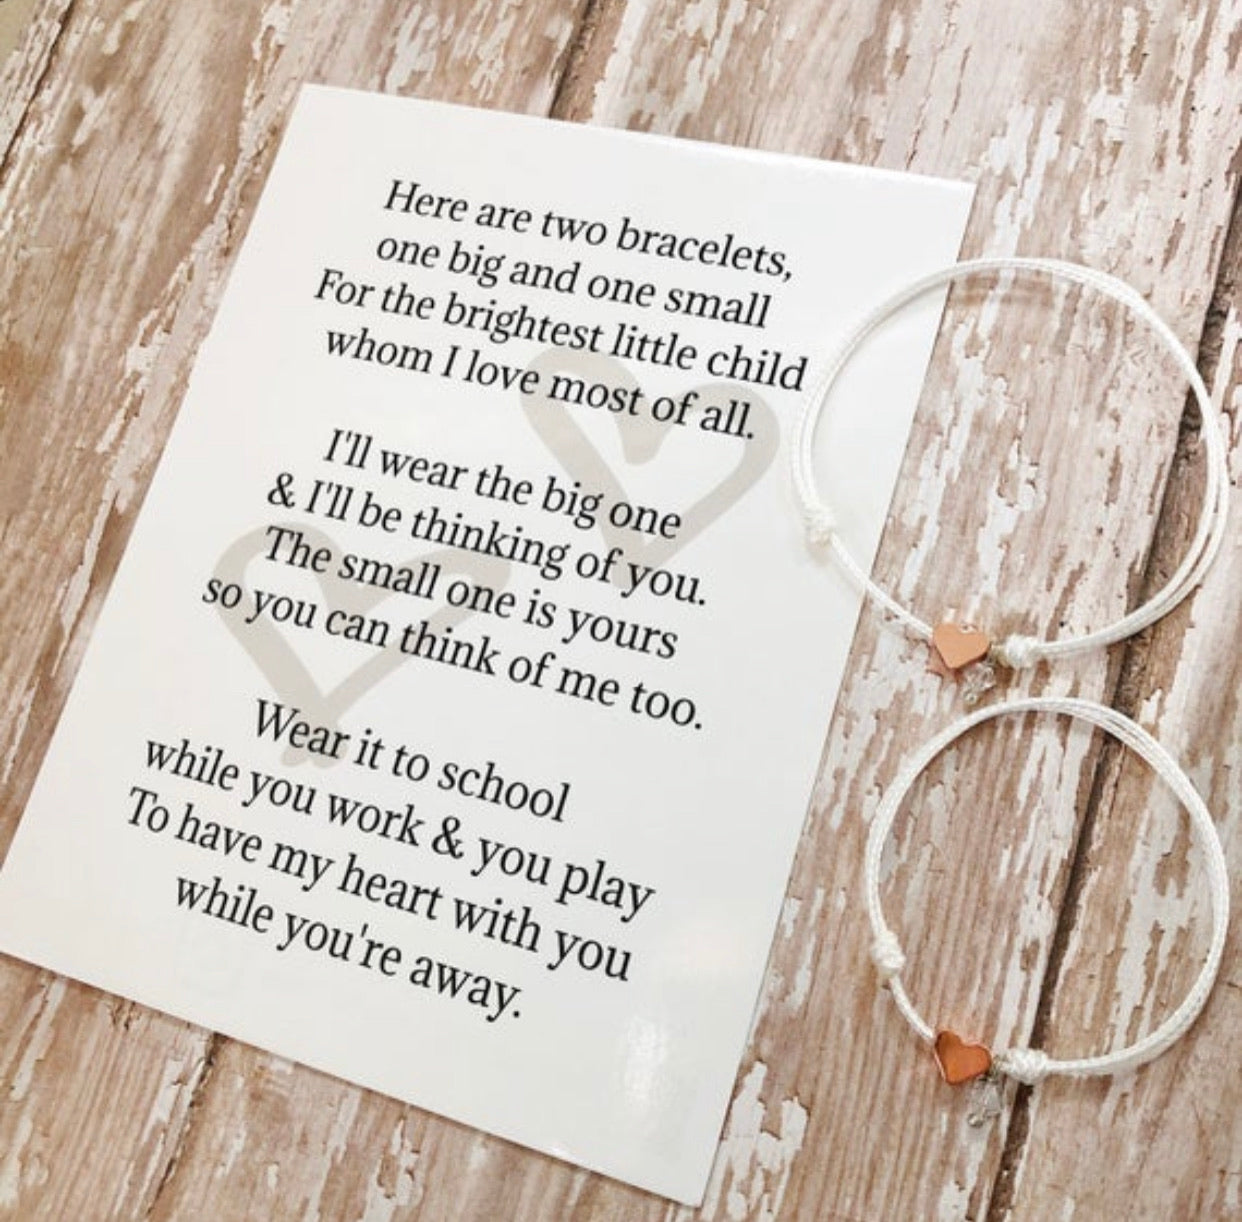 Here are two bracelets,
one big and one small
For the brightest little child
whom I love most of all.
I'll wear the big one
& I'll be thinking of you.
The small one is yours
so you can think of me too.
Wear it to school
while you work & you play
To have my heart with you
while you're away.